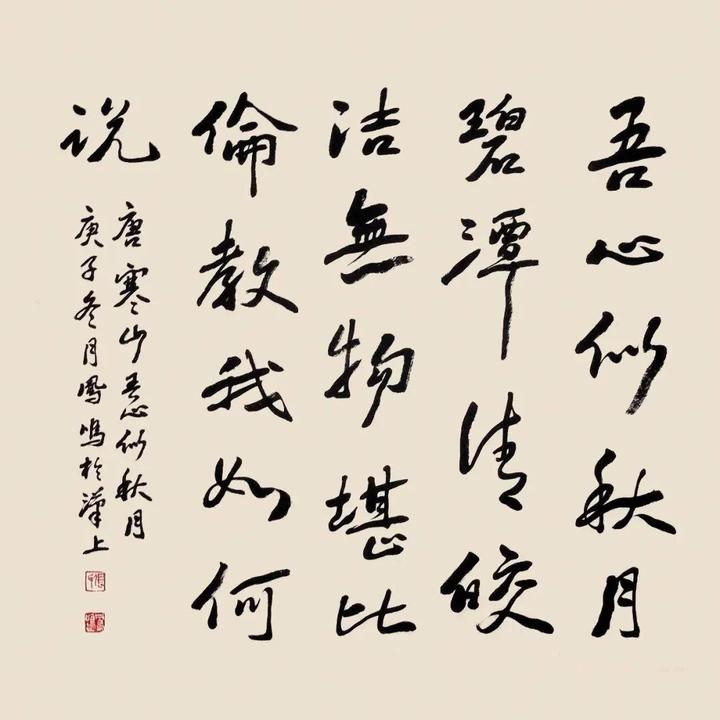 吾心似秋月
碧潭清皎
洁無物堪比
倫教我如何
说
唐寒山吾心似秋月
庚子冬月鳳鳴於漢上